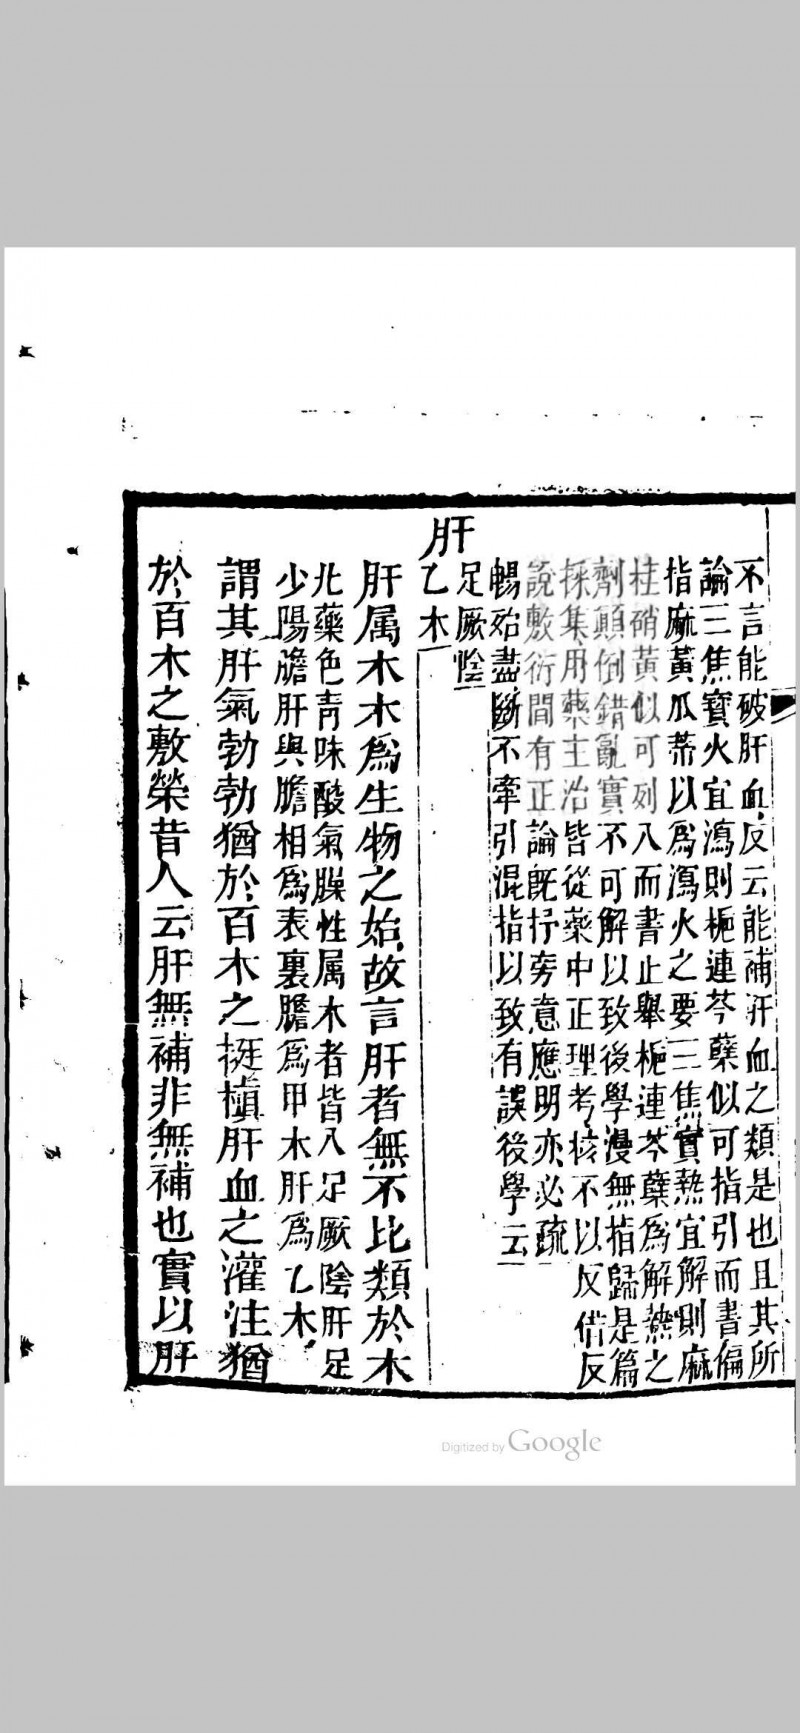 不言能破肝血反云能補肝血之類是也且其所
論三焦實火宜瀉則梔連芩蘗似可指引而書偏
指麻黃瓜蒂以爲瀉火之要三焦實熱宜解則麻
桂硝黃似可列入而書止舉梔連芩蘗爲解熱之
劑顛倒錯亂實不可解以致後學漫無指歸是篇
採集用藥主治皆從藥中正理考核不以反借反
說敷衍間有正論旣抒旁意應明亦必疏
暢始盡斷不牽引混指以致有誤後學云
肝
足厥陰
乙木
肝属木木爲生物之始故言肝者無不比類於木
凡藥色靑味酸氣臊性属木者皆入足厥陰肝足
少陽膽肝與膽相爲表裏膽爲甲木肝爲乙木
謂其肝氣勃勃猶於百木之挺植肝血之灌注猶
於百木之敷榮昔人云肝無補非無補也實以肝
Digitized by Google